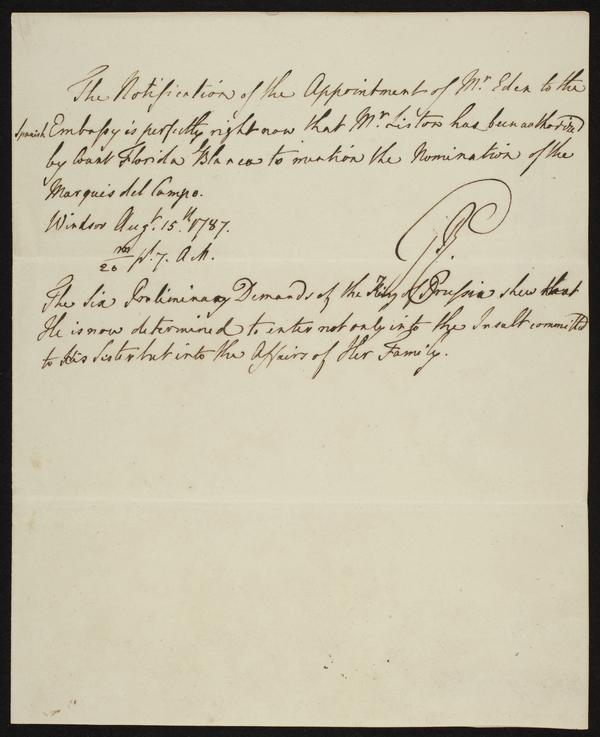 The Notification of the Appointment of Mr. Eden to the
Spanish Embassy is perfectly right now that Mr. Liston has been authorized
by Count Florida Blanca to mention the Nomination of the
Marquis del Campo.
Windsor Augt. 15.th 1787.
m/20 pt. 7. A.M.
GR
The Six Preliminary Demands of the King of Prussia shew that
He is now determined to enter not only into the Insult committed
to His Sister but into the Affairs of Her Family.